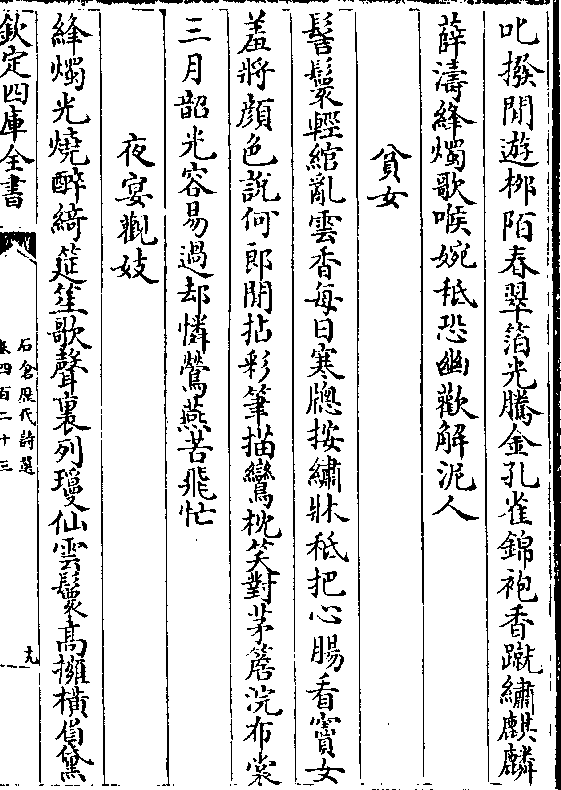 叱撥閒遊栁陌春翠箔光騰金孔雀錦袍香蹴繡麒麟
薛濤絳燭歌喉婉秪恐幽歡解泥人
貧女
髻鬟輕綰亂雲香每日寒牕按繡牀秪把心腸看竇女
羞將顔色說何郎閒拈彩筆描鸞枕笑對茅簷浣布裳
三月韶光容易過却憐鶯燕苦飛忙
夜宴觀妓
絳燭光燒醉綺筵笙歌聲裏列瓊仙雲鬟高擁橫眉黛
欽定四庫全書
石倉歷代詩選
卷四百二十三
九